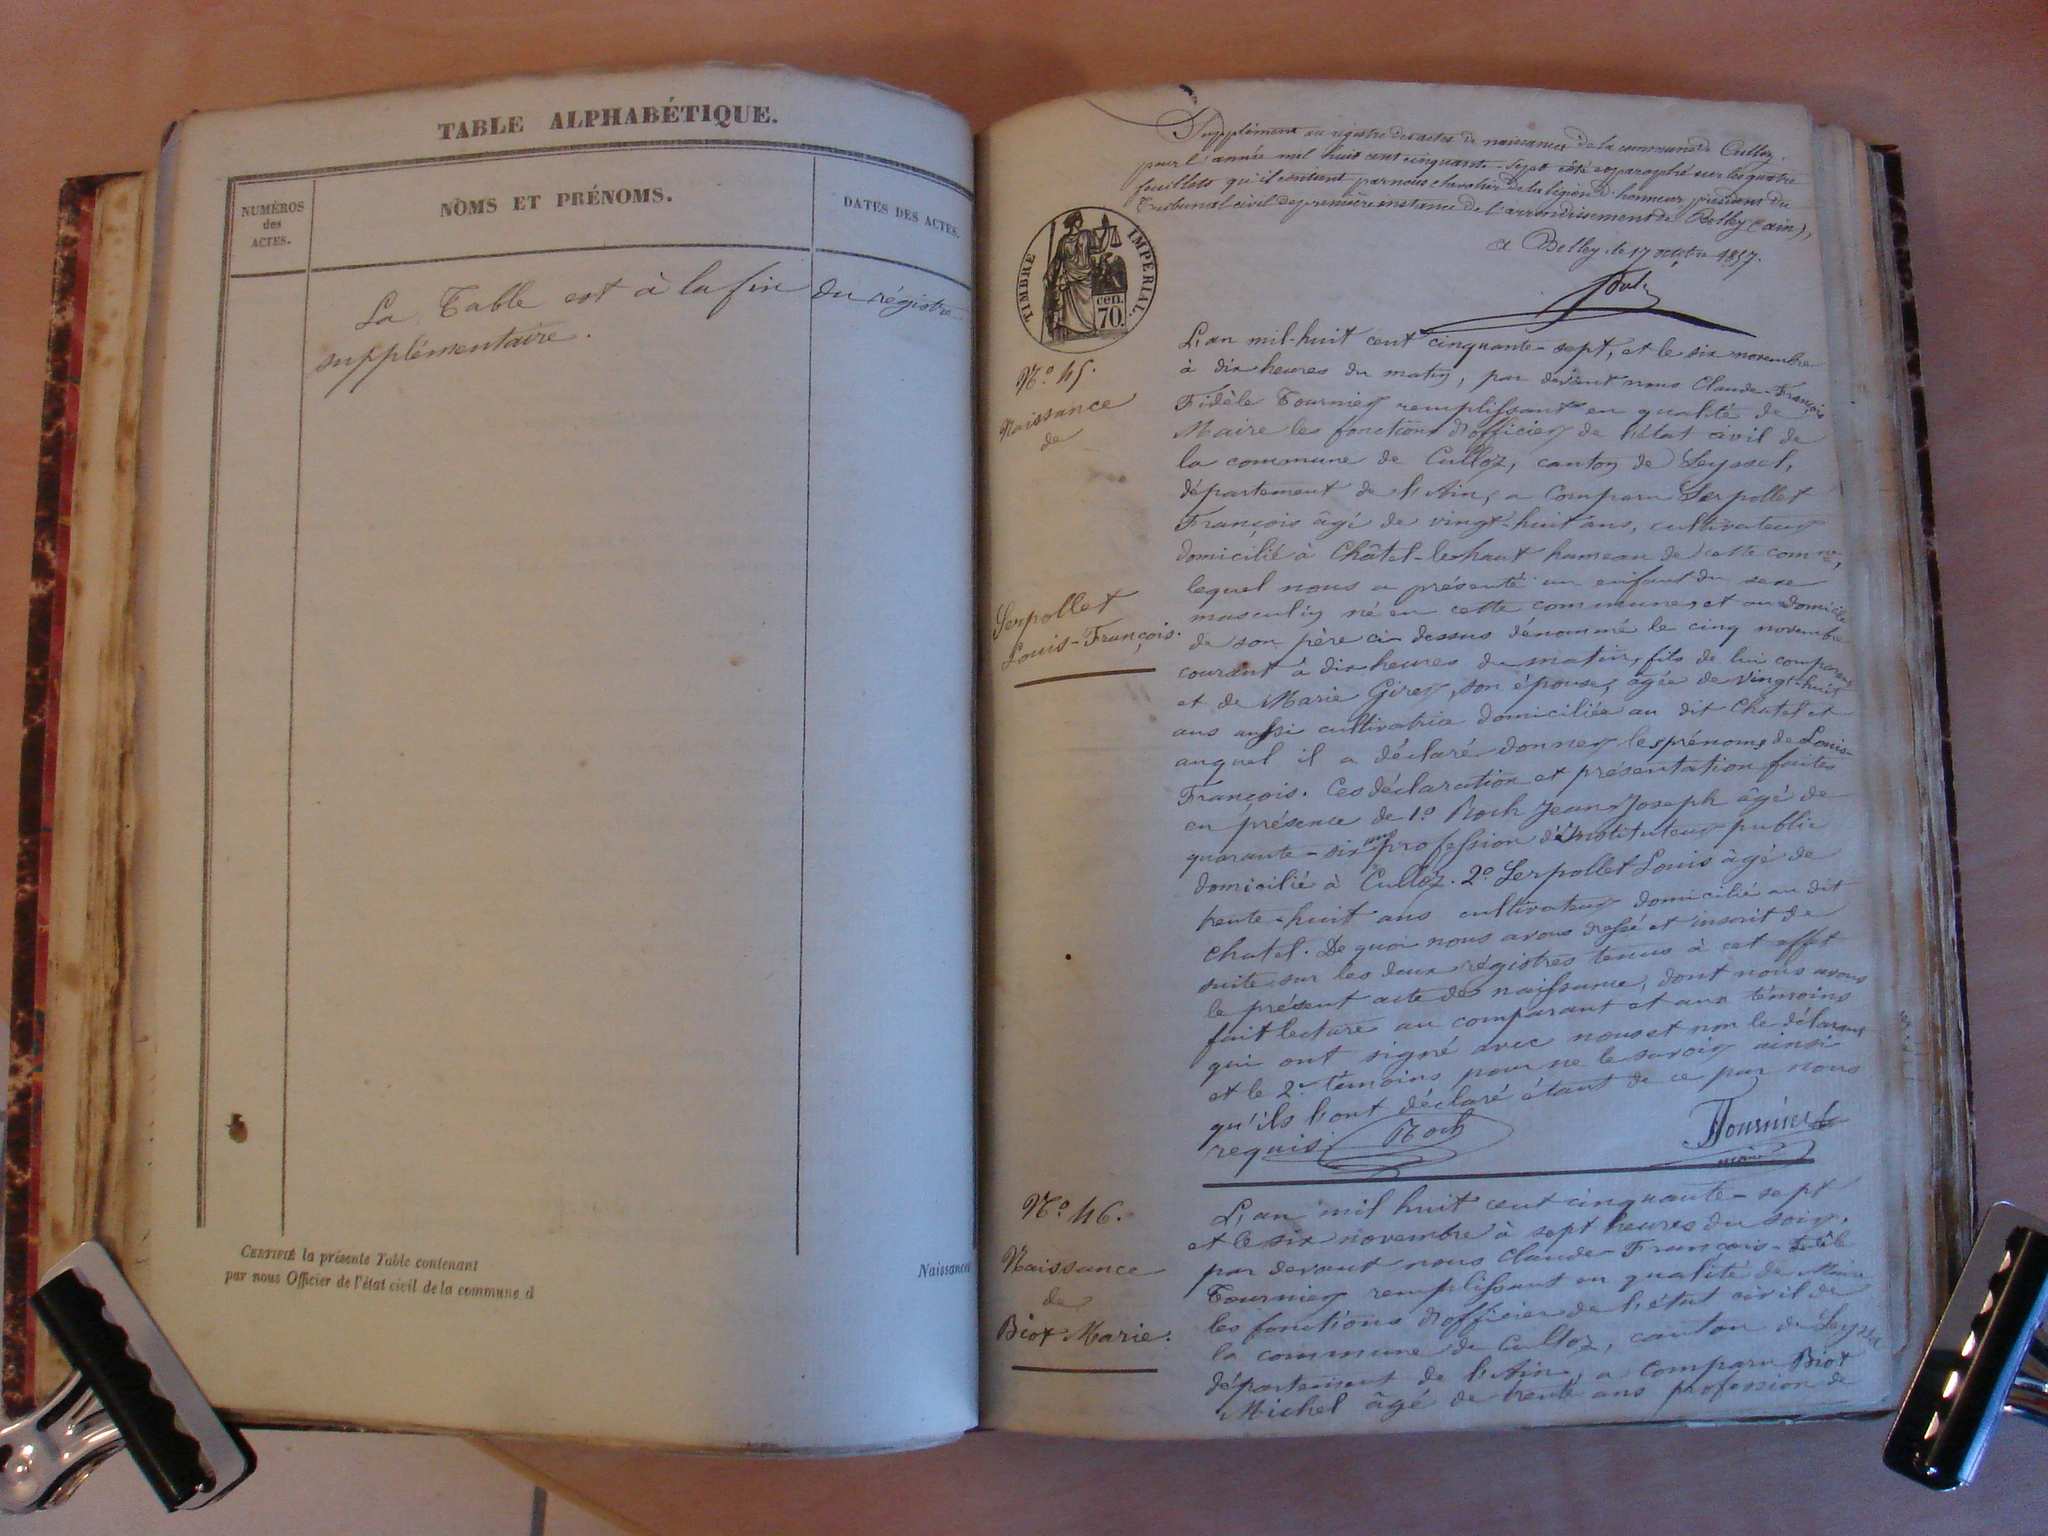 TABLE ALPHABÉTIQUE.
NUMÉROS
des
ACTES.
NOMS ET PRÉNOMS.
DATES DES ACTES.
La Table est à la fin du régistre
supplémentaire.
CERTIFIÉ la présente Table contenant
par nous Officier de l'état civil de la commune d
Naissances
Supplément au registre des actes de naissances de la commune de Culloz
pour l'année mil huit cent cinquante-sept côté et paraphé sur les quatre
feuillets qu'il contient par nous chevalier de la légion d'honneur président du
Tribunal civil de première instance de l'arrondissement de Belley (ain),
a Belley le 17 octobre 1857.
TIMBRE IMPERIAL.
cen.
70.
N.º 45.
Naissance
de
Serpollet
Louis-François.
L'an mil-huit cent cinquante-sept, et le six novembre
à dix heures du matin, par devant nous Claude-François
Fidèle Tournier remplissant en qualité de
Maire les fonctions d'officier de l'état civil de
la commune de Culloz, canton de Seyssel,
département de l'Ain, a comparu Serpollet
François âgé de vingt-huit ans, cultivateur
domicilié à Châtel-le-haut hameau de cette comne,
lequel nous a présenté un enfant du sexe
masculin né en cette commune et au domicile
de son père ci-dessus dénommé le cinq novembre
courant à dix heures du matin, fils de lui comparant
et de Marie Girer, son épouse, âgée de vingt-huit
ans aussi cultivatrice domiciliée au dit Chatel et
auquel il a déclaré donner les prénoms de Louis-
François. Ces déclaration et présentation faites
en présence de 1.º Roch Jean-Joseph âgé de
quarante-six ans profession d'instituteur public
domicilié à Culloz. 2.º Serpollet Louis âgé de
trente-huit ans cultivateur domicilié au dit
Chatel. De quoi nous avons dressé et inscrit de
suite sur les deux régistres tenus à cet effet
le présent acte de naissance, dont nous avons
fait lecture au comparant et aux témoins
qui ont signé avec nous et non le déclarant
et le 2.e témoins pour ne le savoir ainsi
qu'ils l'ont déclaré étant de ce par nous
requis.
Roch
Tournier
maire
N.º 46.
Naissance
de
Biot Marie.
L'an mil huit cent cinquante-sept
et le six novembre à sept heures du soir,
par devant nous Claude-François-Fidèle
Tournier remplissant en qualité de Maire
les fonctions d'officier de l'état civil de
la commune de Culloz, canton de Seyssel
département de l'Ain, a comparu Biot
Michel âgé de trente ans profession de